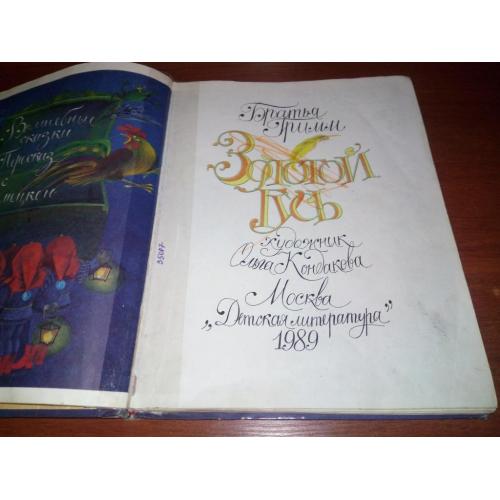 Волшебные
сказки
Перевод
с
Братья
Гримм
Золотой
Гусь
художник
Ольга Кондакова
Москва
„Детская литература”
1989